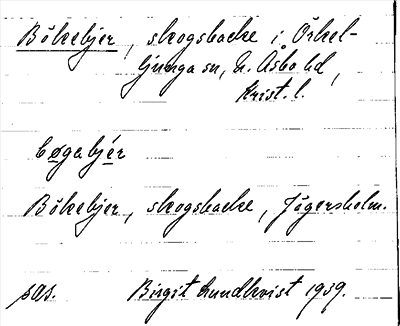 Bökebjer, skogsbacke i Örkel-
ljunga sn, N. Åsbo hd,
Krist. l.
bøgabjér
Bökebjer, skogsbacke, Jägersholm.
sas.
Birgit Lundkvist 1939.